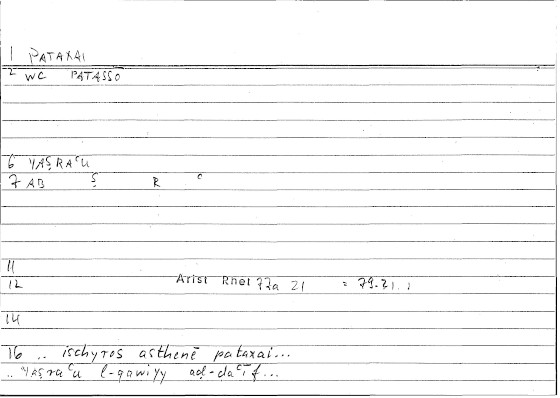 1 PATAXAI
2 WC PATASSO
6 YAṢRAʿU
7 AB Ṣ R ʿ
11
12 Arist Rhet 77a 21 = 79.21
14
16 .. ischyros asthenē pataxai...
.. yaṣraʿu l-qawiyy aḍ-ḍaʿīf...